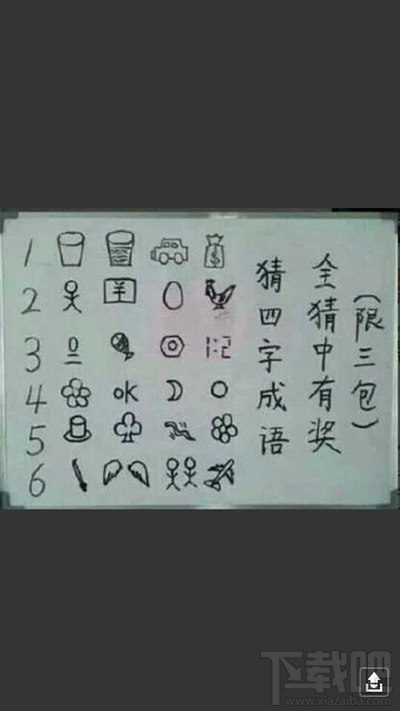 (限三包)
全猜中有奖
猜四字成语
1
2 羊
3 1:2
4 OK
5
6
下载吧
www.xiazaiba.com